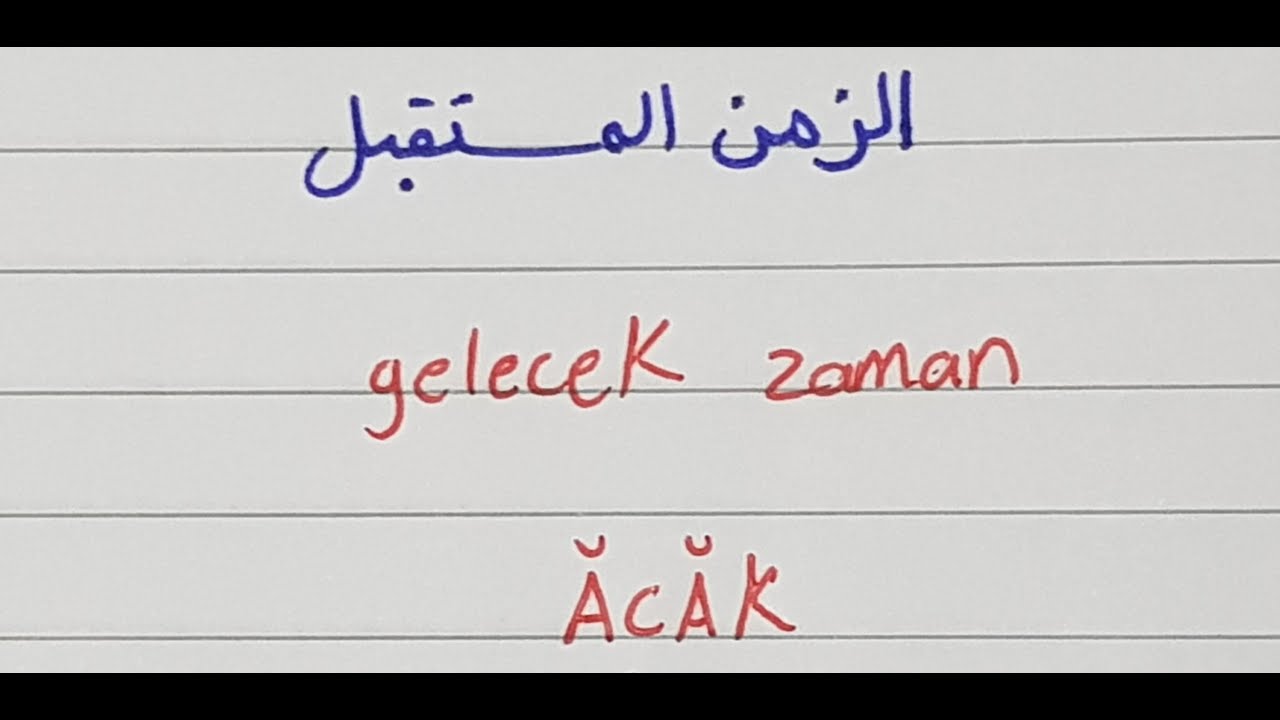 الزمن المستقبل
gelecek zaman
ĂcĂk